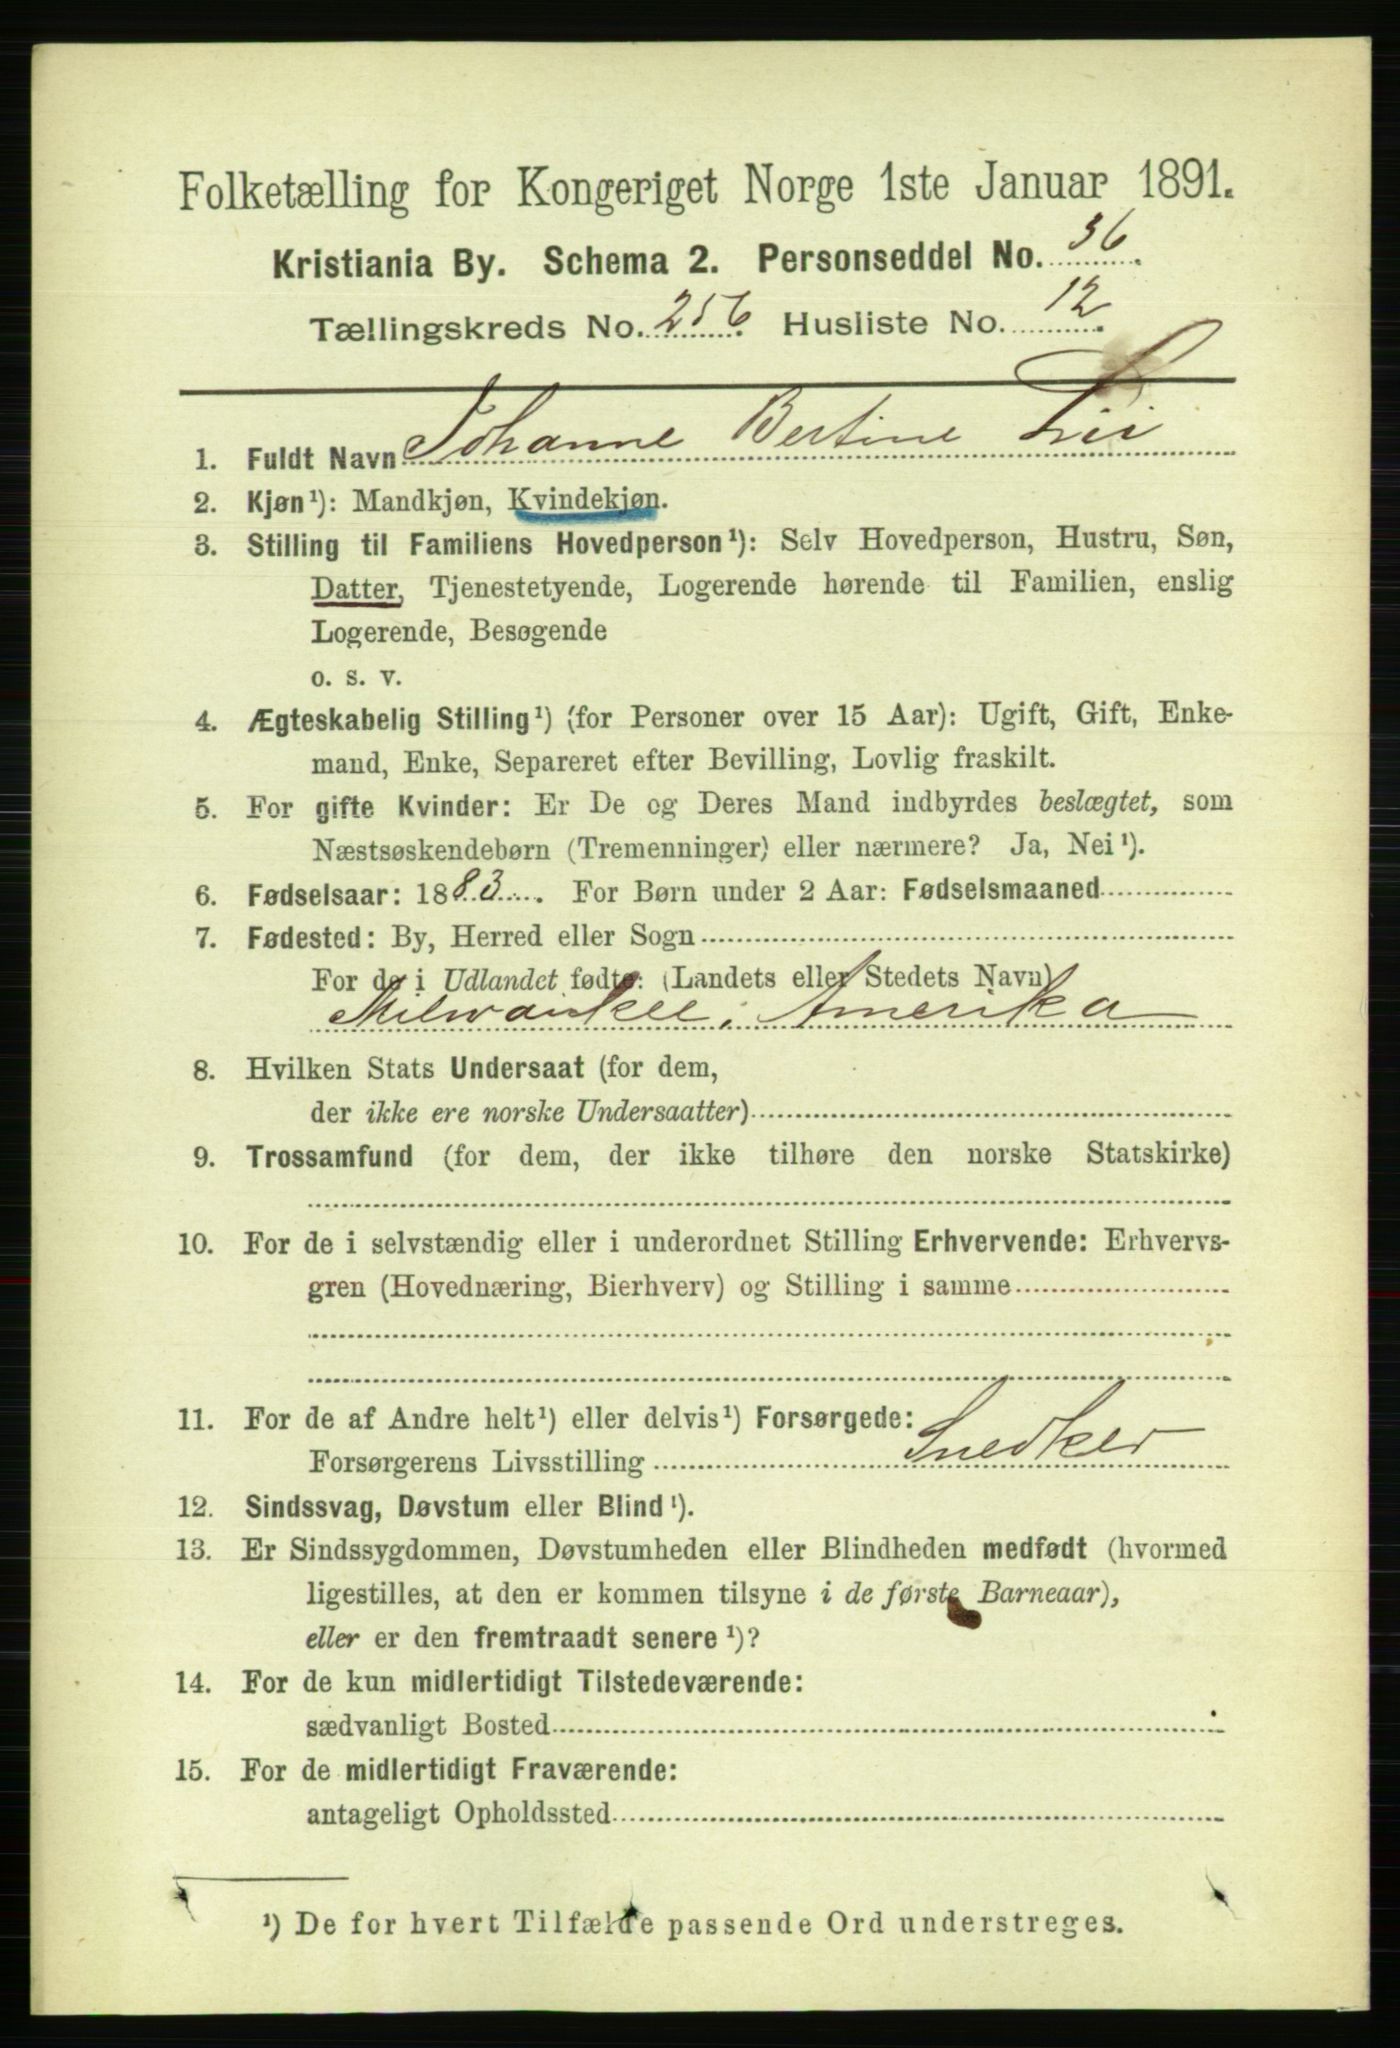 Folketælling for Kongeriget Norge 1ste Januar 1891.
Kristiania By. Schema 2. Personseddel No. 36.
Tællingskreds No. 256. Husliste No. 12.
1. Fuldt Navn Johanne Bertine
2. Kjøn¹): Mandkjøn, Kvindekjøn.
3. Stilling til Familiens Hovedperson¹): Selv Hovedperson, Hustru, Søn,
Datter, Tjenestetyende, Logerende hørende til Familien, enslig
Logerende, Besøgende
o. s. v.
4. Ægteskabelig Stilling¹) (for Personer over 15 Aar): Ugift, Gift, Enke-
mand, Enke, Separeret efter Bevilling, Lovlig fraskilt.
5. For gifte Kvinder: Er De og Deres Mand indbyrdes beslægtet, som
Næstsøskendebørn (Tremenninger) eller nærmere? Ja, Nei¹).
6. Fødselsaar: 1883. For Børn under 2 Aar: Fødselsmaaned
7. Fødested: By, Herred eller Sogn
For de i Udlandet fødte: (Landets eller Stedets Navn)
Milwaukee, Amerika
8. Hvilken Stats Undersaat (for dem,
der ikke ere norske Undersaatter)
9. Trossamfund (for dem, der ikke tilhøre den norske Statskirke)
10. For de i selvstændig eller i underordnet Stilling Erhvervende: Erhvervs-
gren (Hovednæring, Bierhverv) og Stilling i samme
11. For de af Andre helt¹) eller delvis¹) Forsørgede:
Forsørgerens Livsstilling Snedker
12. Sindssvag, Døvstum eller Blind¹).
13. Er Sindssygdommen, Døvstumheden eller Blindheden medfødt (hvormed
ligestilles, at den er kommen tilsyne i de første Barneaar),
eller er den fremtraadt senere¹)?
14. For de kun midlertidigt Tilstedeværende:
sædvanligt Bosted
15. For de midlertidigt Fraværende:
antageligt Opholdssted
¹) De for hvert Tilfælde passende Ord understreges.